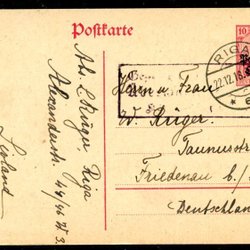 Postkarte
10
RIGA
22.12.18
Gep
Herrn u. Frau
W. Rüger.
Taunusstr.
Friedenau b/
Deutschland
Abs. L. Rüger. Riga
Alexanderstr. 44/46 W. 3.
Livland